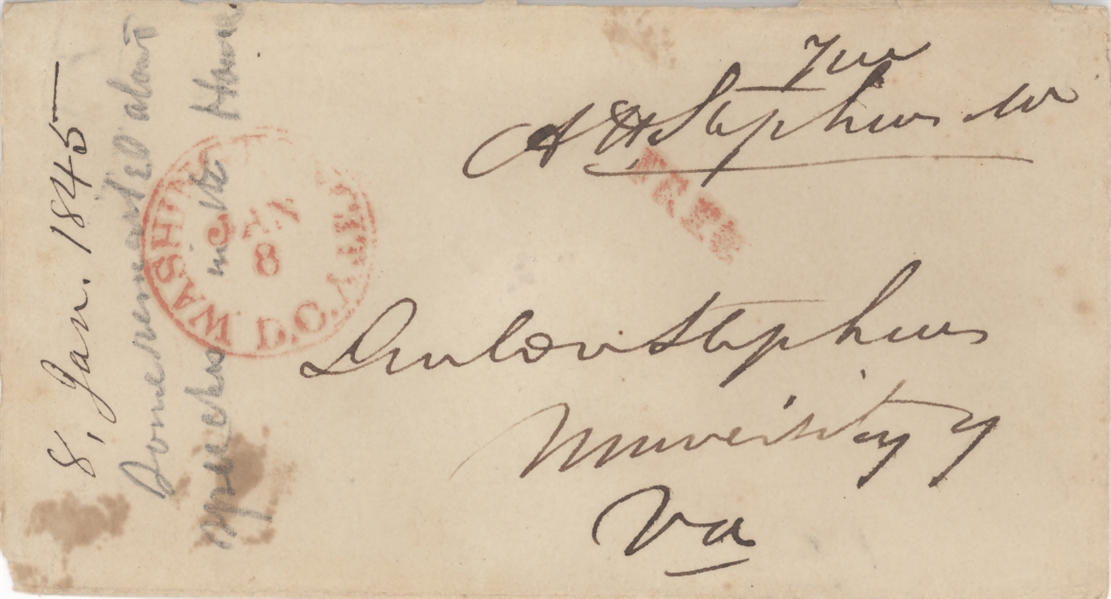 Free
A H Stephens M
FREE
WASHINGTON CITY D.C.
JAN
8
Linton Stephens
University of
Va
8, Jan. 1845
Some remarks about
speeches in the House.